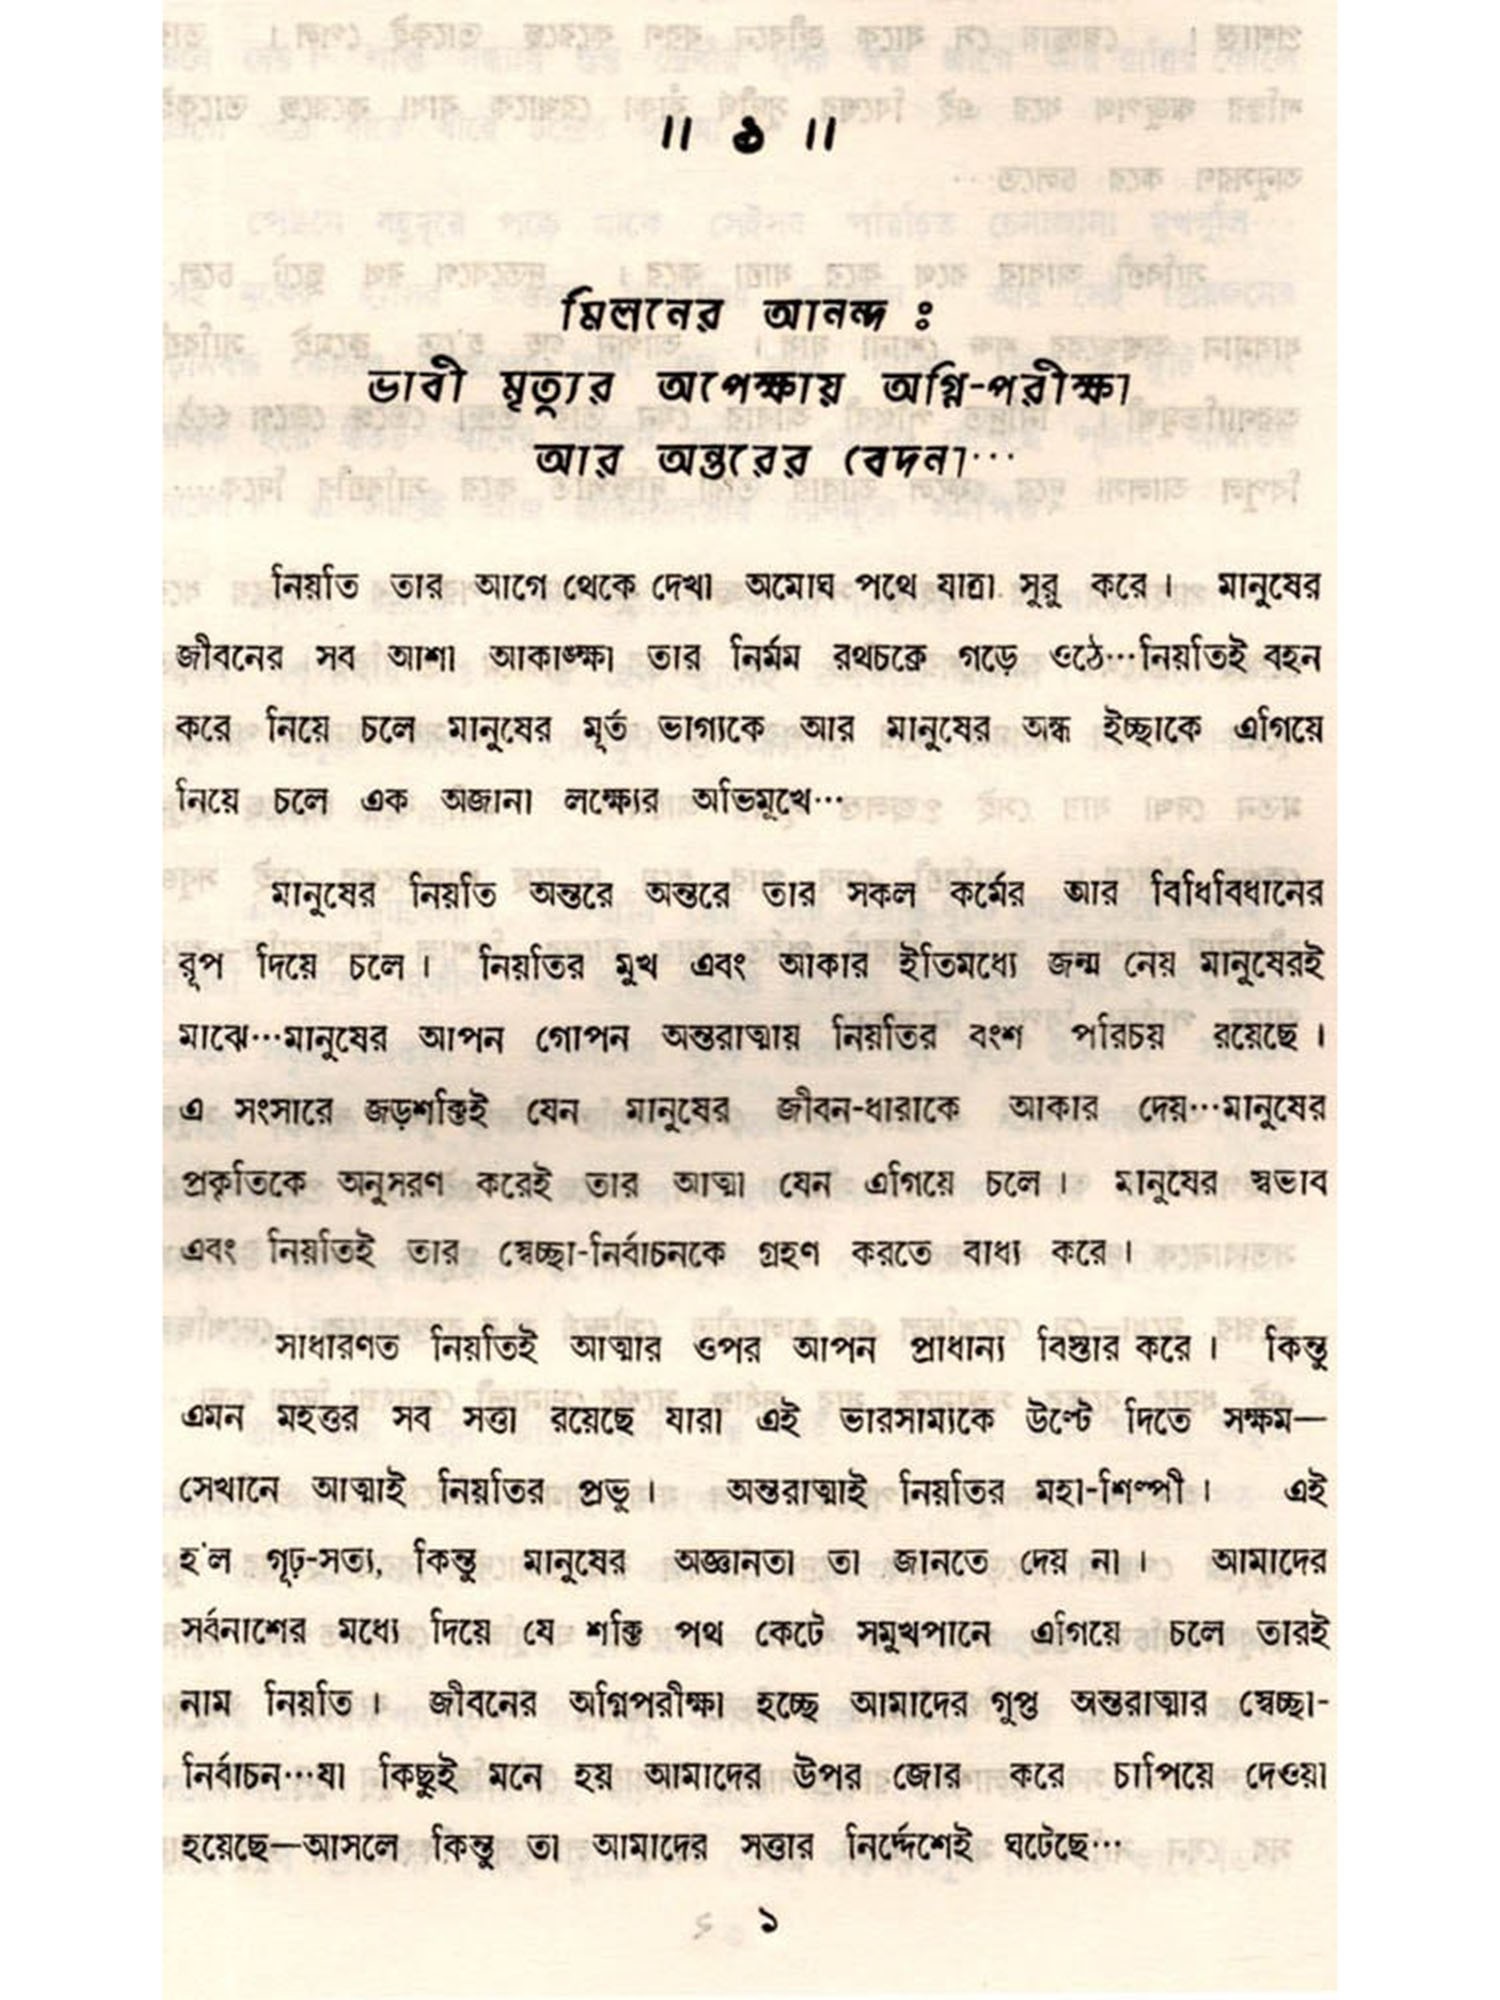 ॥ ১ ॥
মিলনের আনন্দ ঃ
ভাবী মৃত্যুর অপেক্ষায় অগ্নি-পরীক্ষা
আর অন্তরের বেদনা···
নিয়তি তার আগে থেকে দেখা অমোঘ পথে যাত্রা সুরু করে। মানুষের
জীবনের সব আশা আকাঙ্ক্ষা তার নির্মম রথচক্রে গড়ে ওঠে···নিয়তিই বহন
করে নিয়ে চলে মানুষের মূর্ত ভাগ্যকে আর মানুষের অন্ধ ইচ্ছাকে এগিয়ে
নিয়ে চলে এক অজানা লক্ষ্যের অভিমুখে···
মানুষের নিয়তি অন্তরে অন্তরে তার সকল কর্মের আর বিধিবিধানের
রূপ দিয়ে চলে। নিয়তির মুখ এবং আকার ইতিমধ্যে জন্ম নেয় মানুষেরই
মাঝে···মানুষের আপন গোপন অন্তরাত্মায় নিয়তির বংশ পরিচয় রয়েছে।
এ সংসারে জড়শক্তিই যেন মানুষের জীবন-ধারাকে আকার দেয়···মানুষের
প্রকৃতিকে অনুসরণ করেই তার আত্মা যেন এগিয়ে চলে। মানুষের স্বভাব
এবং নিয়তিই তার স্বেচ্ছা-নির্বাচনকে গ্রহণ করতে বাধ্য করে।
সাধারণত নিয়তিই আত্মার ওপর আপন প্রাধান্য বিস্তার করে। কিন্তু
এমন মহত্তর সব সত্তা রয়েছে যারা এই ভারসাম্যকে উল্টে দিতে সক্ষম—
সেখানে আত্মাই নিয়তির প্রভু। অন্তরাত্মাই নিয়তির মহা-শিল্পী। এই
হ'ল গূঢ়-সত্য, কিন্তু মানুষের অজ্ঞানতা তা জানতে দেয় না। আমাদের
সর্বনাশের মধ্যে দিয়ে যে শক্তি পথ কেটে সমুখপানে এগিয়ে চলে তারই
নাম নিয়তি। জীবনের অগ্নিপরীক্ষা হচ্ছে আমাদের গুপ্ত অন্তরাত্মার স্বেচ্ছা-
নির্বাচন···যা কিছুই মনে হয় আমাদের উপর জোর করে চাপিয়ে দেওয়া
হয়েছে—আসলে কিন্তু তা আমাদের সত্তার নির্দ্দেশেই ঘটেছে···
১